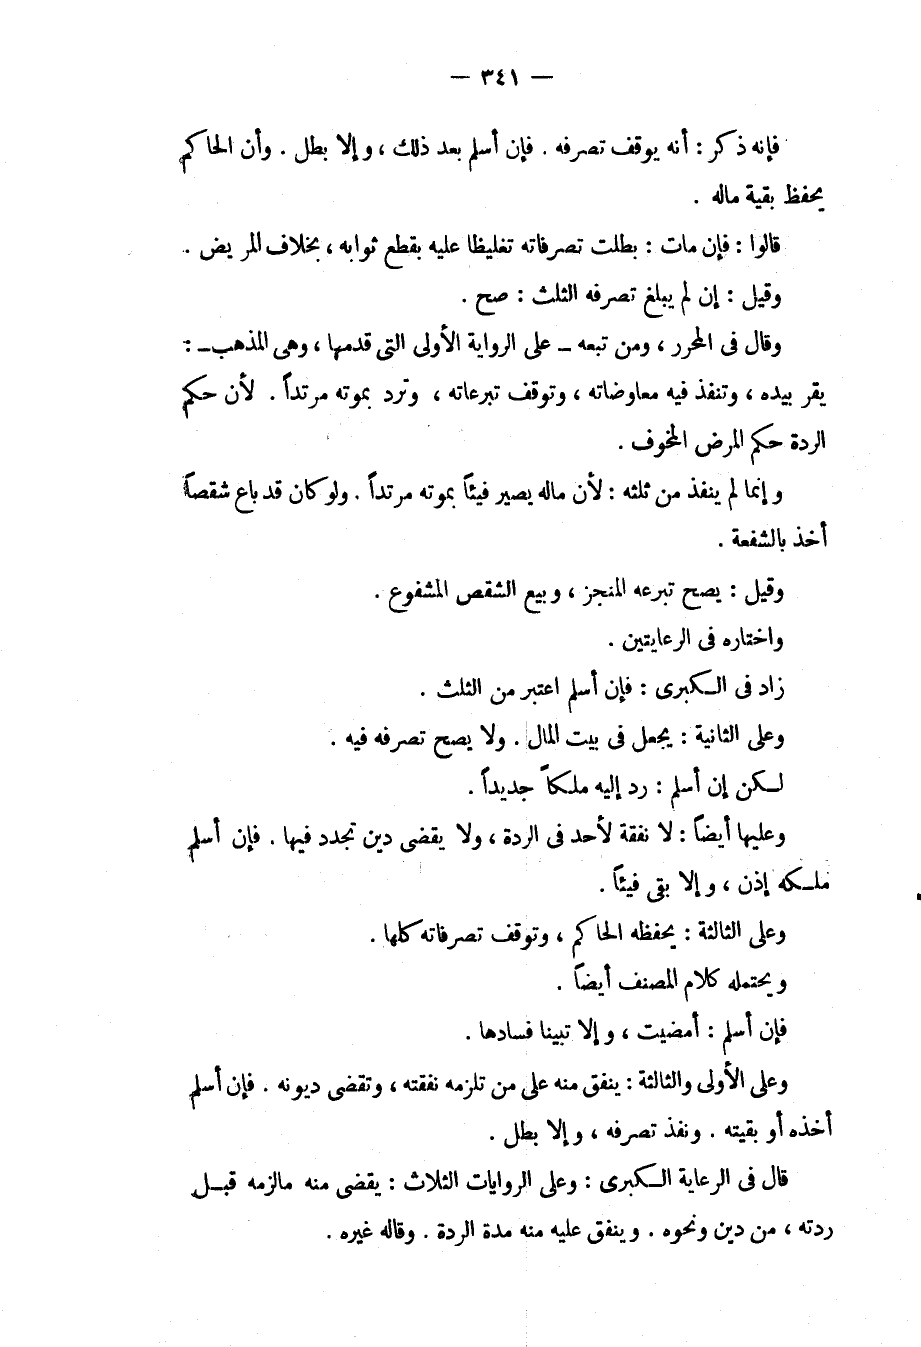 — ٣٤١ —
فإنه ذكر : أنه يوقف تصرفه . فإن أسلم بعد ذلك ، وإلا بطل . وأن الحاكم
يحفظ بقية ماله .
قالوا : فإن مات : بطلت تصرفاته تغليظا عليه بقطع ثوابه ، بخلاف المريض .
وقيل : إن لم يبلغ تصرفه الثلث : صح .
وقال فى المحرر ، ومن تبعه ــ على الرواية الأولى التى قدمها ، وهى المذهب ــ :
يقر بيده ، وتنفذ فيه معاوضاته ، وتوقف تبرعاته ، وترد بموته مرتداً . لأن حكم
الردة حكم المرض المخوف .
وإنما لم ينفذ من ثلثه : لأن ماله يصير فيئاً بموته مرتداً . ولو كان قد باع شقصاً
أخذ بالشفعة .
وقيل : يصح تبرعه المنجز ، وبيع الشقص المشفوع .
واختاره فى الرعايتين .
زاد فى الكبرى : فإن أسلم اعتبر من الثلث .
وعلى الثانية : يجعل فى بيت المال . ولا يصح تصرفه فيه .
لكن إن أسلم : رد إليه ملكاً جديداً .
وعليها أيضاً : لا نفقة لأحد فى الردة ، ولا يقضى دين تجدد فيها . فإن أسلم
ملكه إذن ، وإلا بقى فيئاً .
وعلى الثالثة : يحفظه الحاكم ، وتوقف تصرفاته كلها .
ويحتمله كلام المصنف أيضاً .
فإن أسلم : أمضيت ، وإلا تبينا فسادها .
وعلى الأولى والثالثة : ينفق منه على من تلزمه نفقته ، وتقضى ديونه . فإن أسلم
أخذه أو بقيته . ونفذ تصرفه ، وإلا بطل .
قال فى الرعاية الكبرى : وعلى الروايات الثلاث : يقضى منه مالزمه قبل
ردته ، من دين ونحوه . وينفق عليه منه مدة الردة . وقاله غيره .